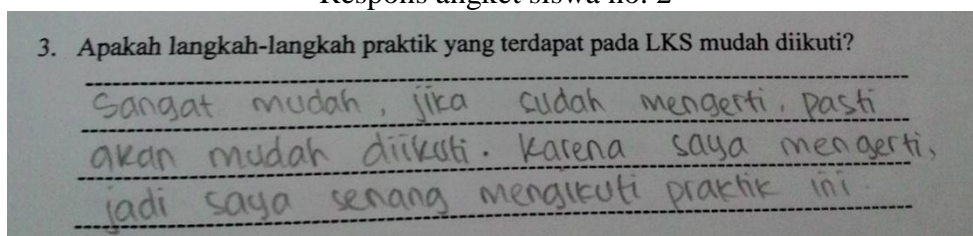 Respons angket siswa no. 2
3. Apakah langkah-langkah praktik yang terdapat pada LKS mudah diikuti?
Sangat mudah, jika sudah mengerti, pasti
akan mudah diikuti. Karena saya mengerti,
jadi saya senang mengikuti praktik ini.